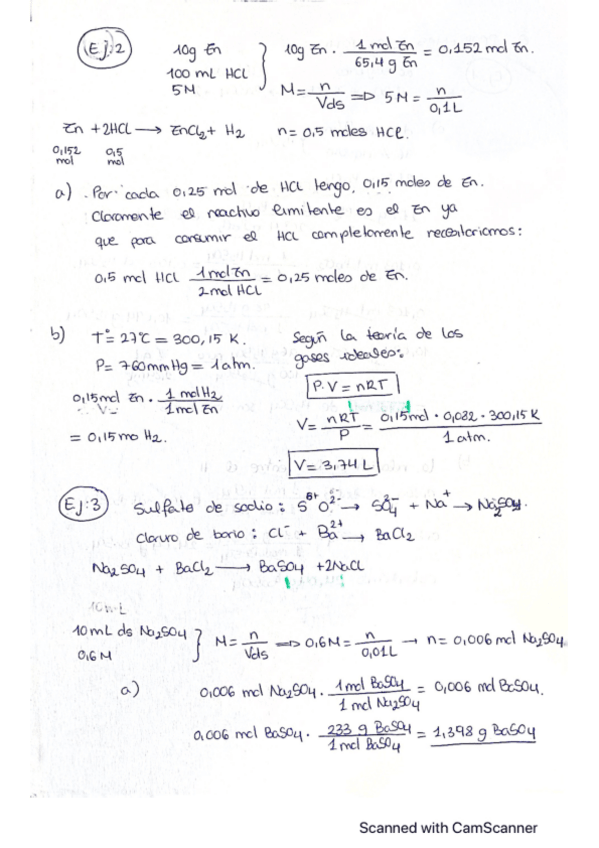 Ej:2
10g Zn
100 mL HCl
5M
10g Zn · 1 mol Zn / 65,4 g Zn = 0,152 mol Zn.
M = n / Vds => 5M = n / 0,1L
Zn + 2HCl → ZnCl2 + H2 n = 0,5 moles HCl.
0,152 mol 0,5 mol
a) Por cada 0,25 mol de HCl tengo, 0,15 moles de Zn.
Claramente el reactivo limitente es el Zn ya
que para consumir el HCl completamente necesitaríamos:
0,5 mol HCl 1 mol Zn / 2 mol HCl = 0,25 moles de Zn.
b) T° = 27°C = 300,15 K.
P = 760 mmHg = 1 atm.
0,15 mol Zn · 1 mol H2 / 1 mol Zn
= 0,15 mo H2.
Según la teoría de los
gases ideales:
P·V = nRT
V = nRT / P = 0,15 mol · 0,082 · 300,15 K / 1 atm.
V = 3,74 L
Ej:3 Sulfato de sodio: S6+ O2- → SO4 2- + Na+ → Na2SO4.
Cloruro de bario: Cl- + Ba2+ → BaCl2
Na2SO4 + BaCl2 → BaSO4 + 2NaCl
10mL
10 mL ds Na2SO4
0,6 M
M = n / Vds => 0,6M = n / 0,01L → n = 0,006 mol Na2SO4.
a) 0,006 mol Na2SO4 · 1 mol BaSO4 / 1 mol Na2SO4 = 0,006 mol BaSO4.
0,006 mol BaSO4 · 233 g BaSO4 / 1 mol BaSO4 = 1,398 g BaSO4
Scanned with CamScanner